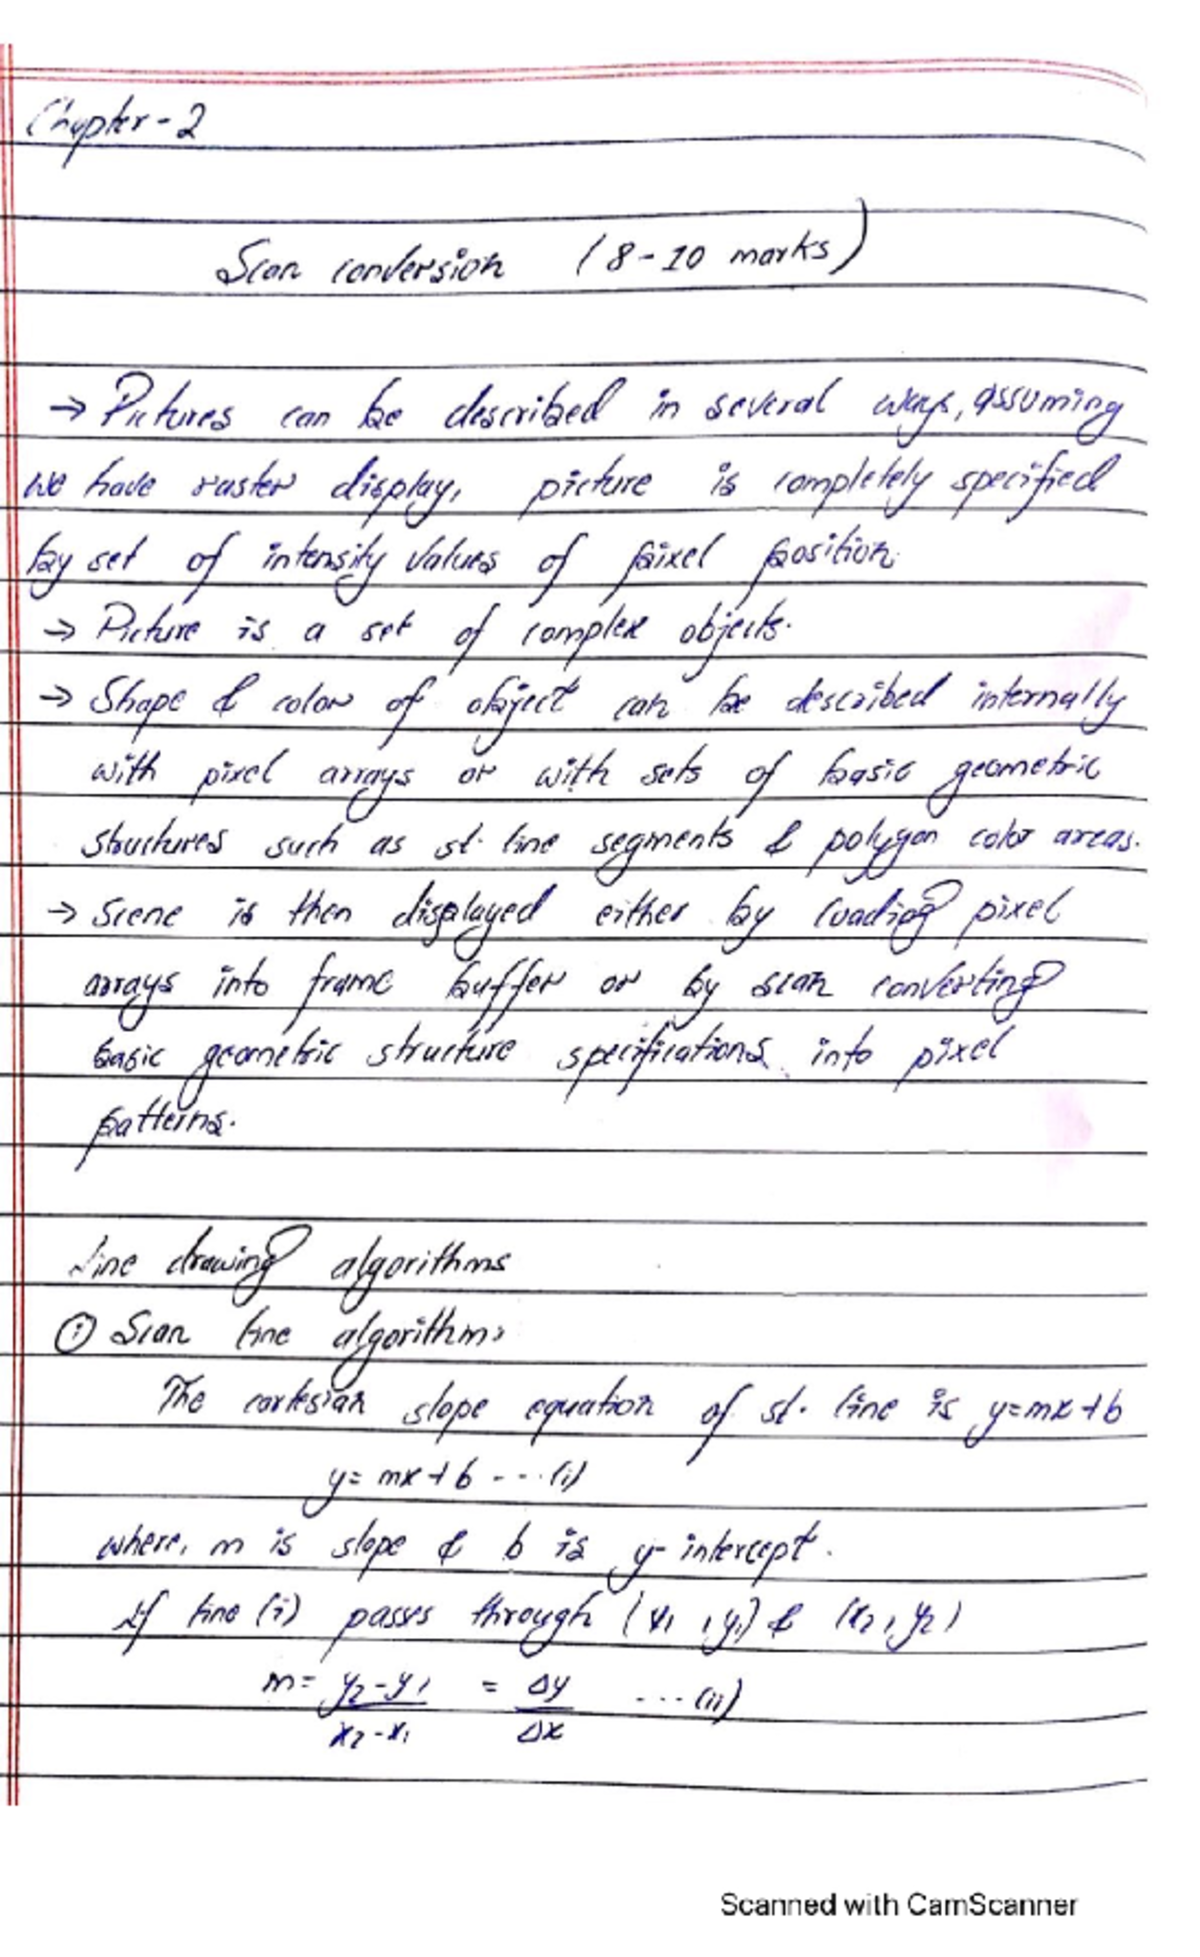 Chapter-2
Scan conversion (8-10 marks)
→ Pictures can be described in several ways, assuming
we have raster display, picture is completely specified
by set of intensity values of pixel position.
→ Picture is a set of complex objects.
→ Shape & color of object can be described internally
with pixel arrays or with sets of basic geometric
structures such as st. line segments & polygon color areas.
→ Scene is then displayed either by loading pixel
arrays into frame buffer or by scan converting
basic geometric structure specifications into pixel
patterns.
Line drawing algorithms
① Scan line algorithm:
The cartesian slope equation of st. line is y=mx+b
y= mx+b ---(i)
where, m is slope & b is y-intercept.
If line (i) passes through (x1, y1) & (x2, y2)
m= y2-y1 / x2-x1 = Δy / Δx ---(ii)
Scanned with CamScanner